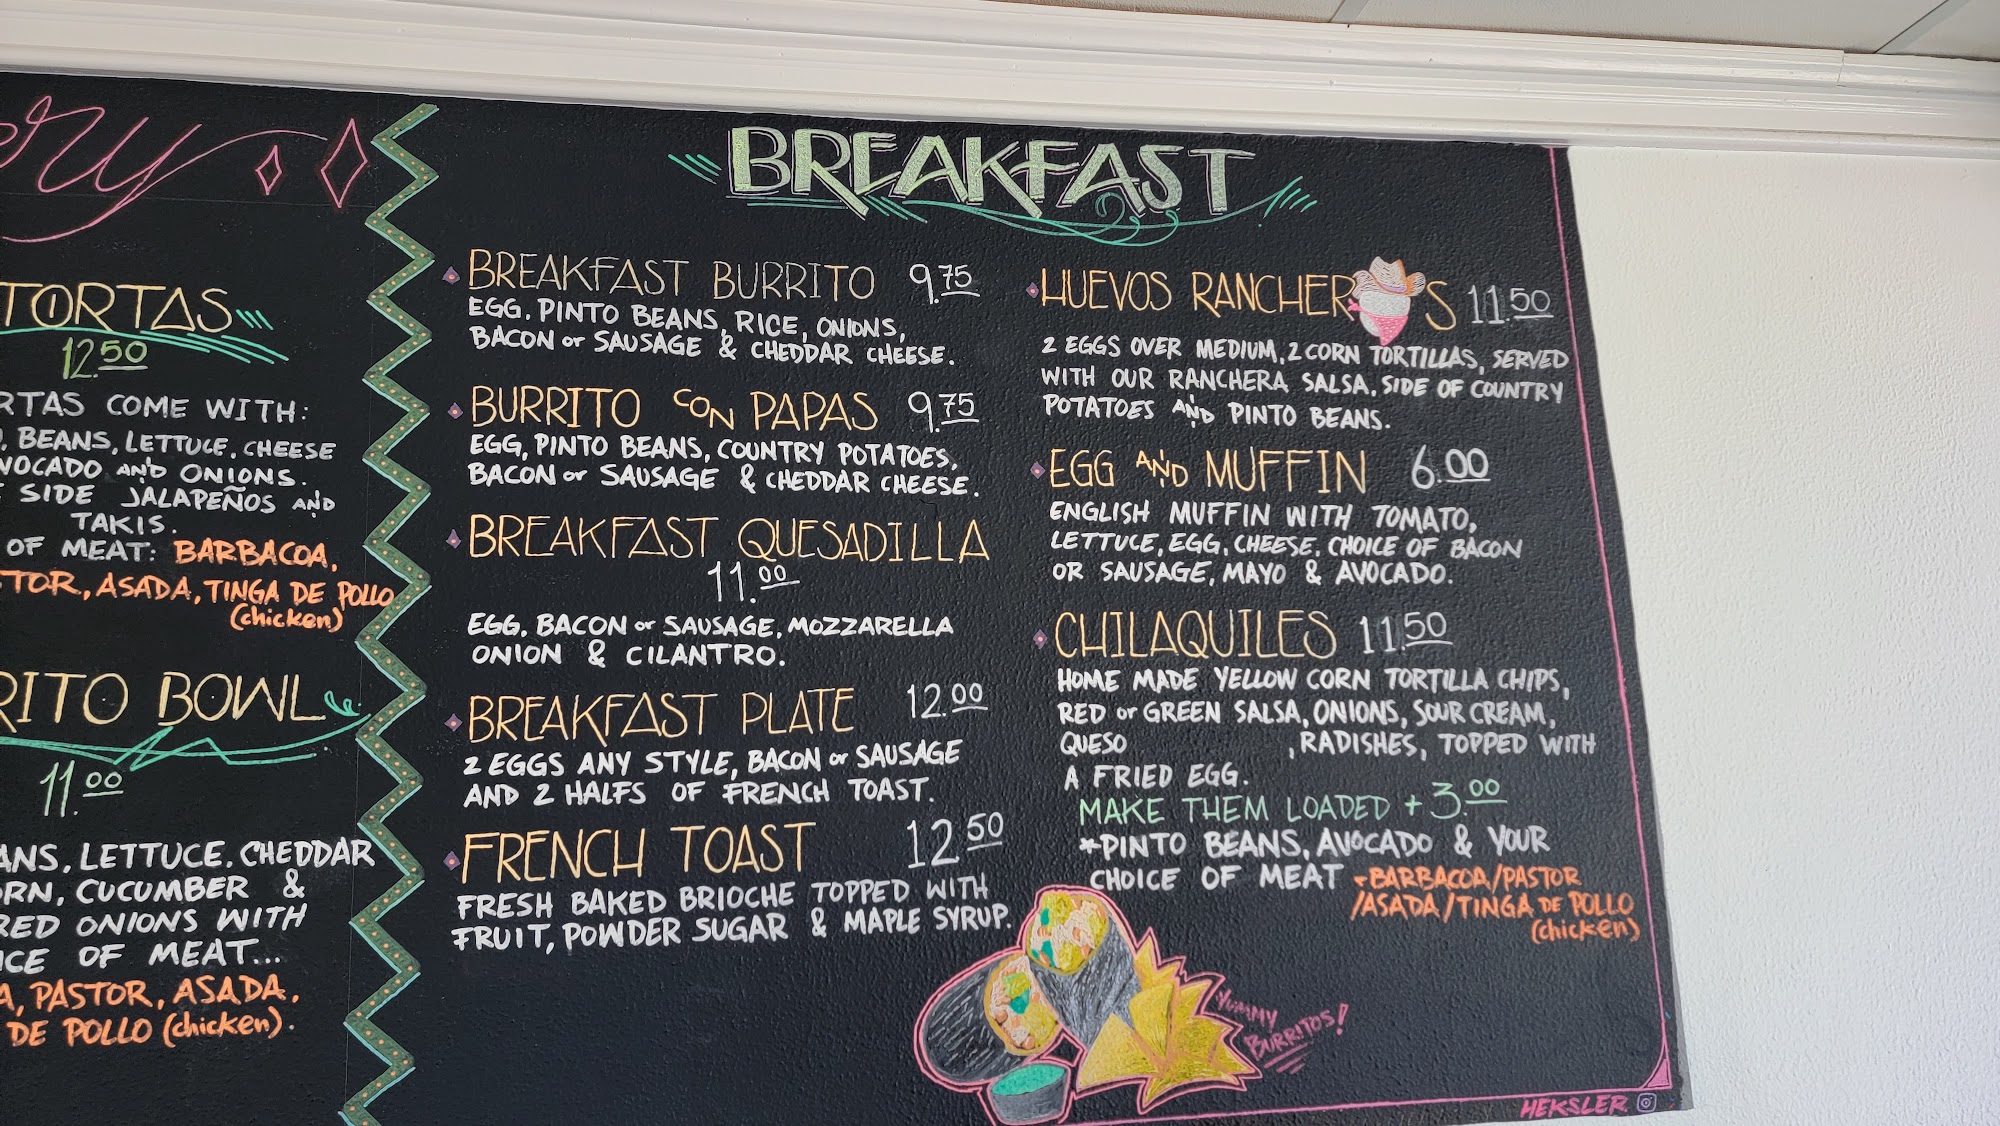 TORTAS
12.50
COME WITH:
BEANS, LETTUCE, CHEESE
AND ONIONS.
SIDE JALAPEÑOS AND
TAKIS.
OF MEAT: BARBACOA,
ASADA, TINGA DE POLLO
(chicken)
BOWL
11.00
LETTUCE, CHEDDAR
CUCUMBER &
RED ONIONS WITH
OF MEAT...
PASTOR, ASADA,
DE POLLO (chicken).
BREAKFAST
BREAKFAST BURRITO 9.75
EGG, PINTO BEANS, RICE, ONIONS,
BACON or SAUSAGE & CHEDDAR CHEESE.
BURRITO CON PAPAS 9.75
EGG, PINTO BEANS, COUNTRY POTATOES,
BACON or SAUSAGE & CHEDDAR CHEESE.
BREAKFAST QUESADILLA
11.00
EGG, BACON or SAUSAGE, MOZZARELLA
ONION & CILANTRO.
BREAKFAST PLATE 12.00
2 EGGS ANY STYLE, BACON or SAUSAGE
AND 2 HALFS OF FRENCH TOAST.
FRENCH TOAST 12.50
FRESH BAKED BRIOCHE TOPPED WITH
FRUIT, POWDER SUGAR & MAPLE SYRUP.
HUEVOS RANCHEROS 11.50
2 EGGS OVER MEDIUM, 2 CORN TORTILLAS, SERVED
WITH OUR RANCHERA SALSA, SIDE OF COUNTRY
POTATOES AND PINTO BEANS.
EGG AND MUFFIN 6.00
ENGLISH MUFFIN WITH TOMATO,
LETTUCE, EGG, CHEESE, CHOICE OF BACON
OR SAUSAGE, MAYO & AVOCADO.
CHILAQUILES 11.50
HOME MADE YELLOW CORN TORTILLA CHIPS,
RED or GREEN SALSA, ONIONS, SOUR CREAM,
QUESO , RADISHES, TOPPED WITH
A FRIED EGG.
MAKE THEM LOADED + 3.00
*PINTO BEANS, AVOCADO & YOUR
CHOICE OF MEAT - BARBACOA/PASTOR
/ASADA/TINGA DE POLLO
(chicken)
YUMMY
BURRITOS!
HEKSLER